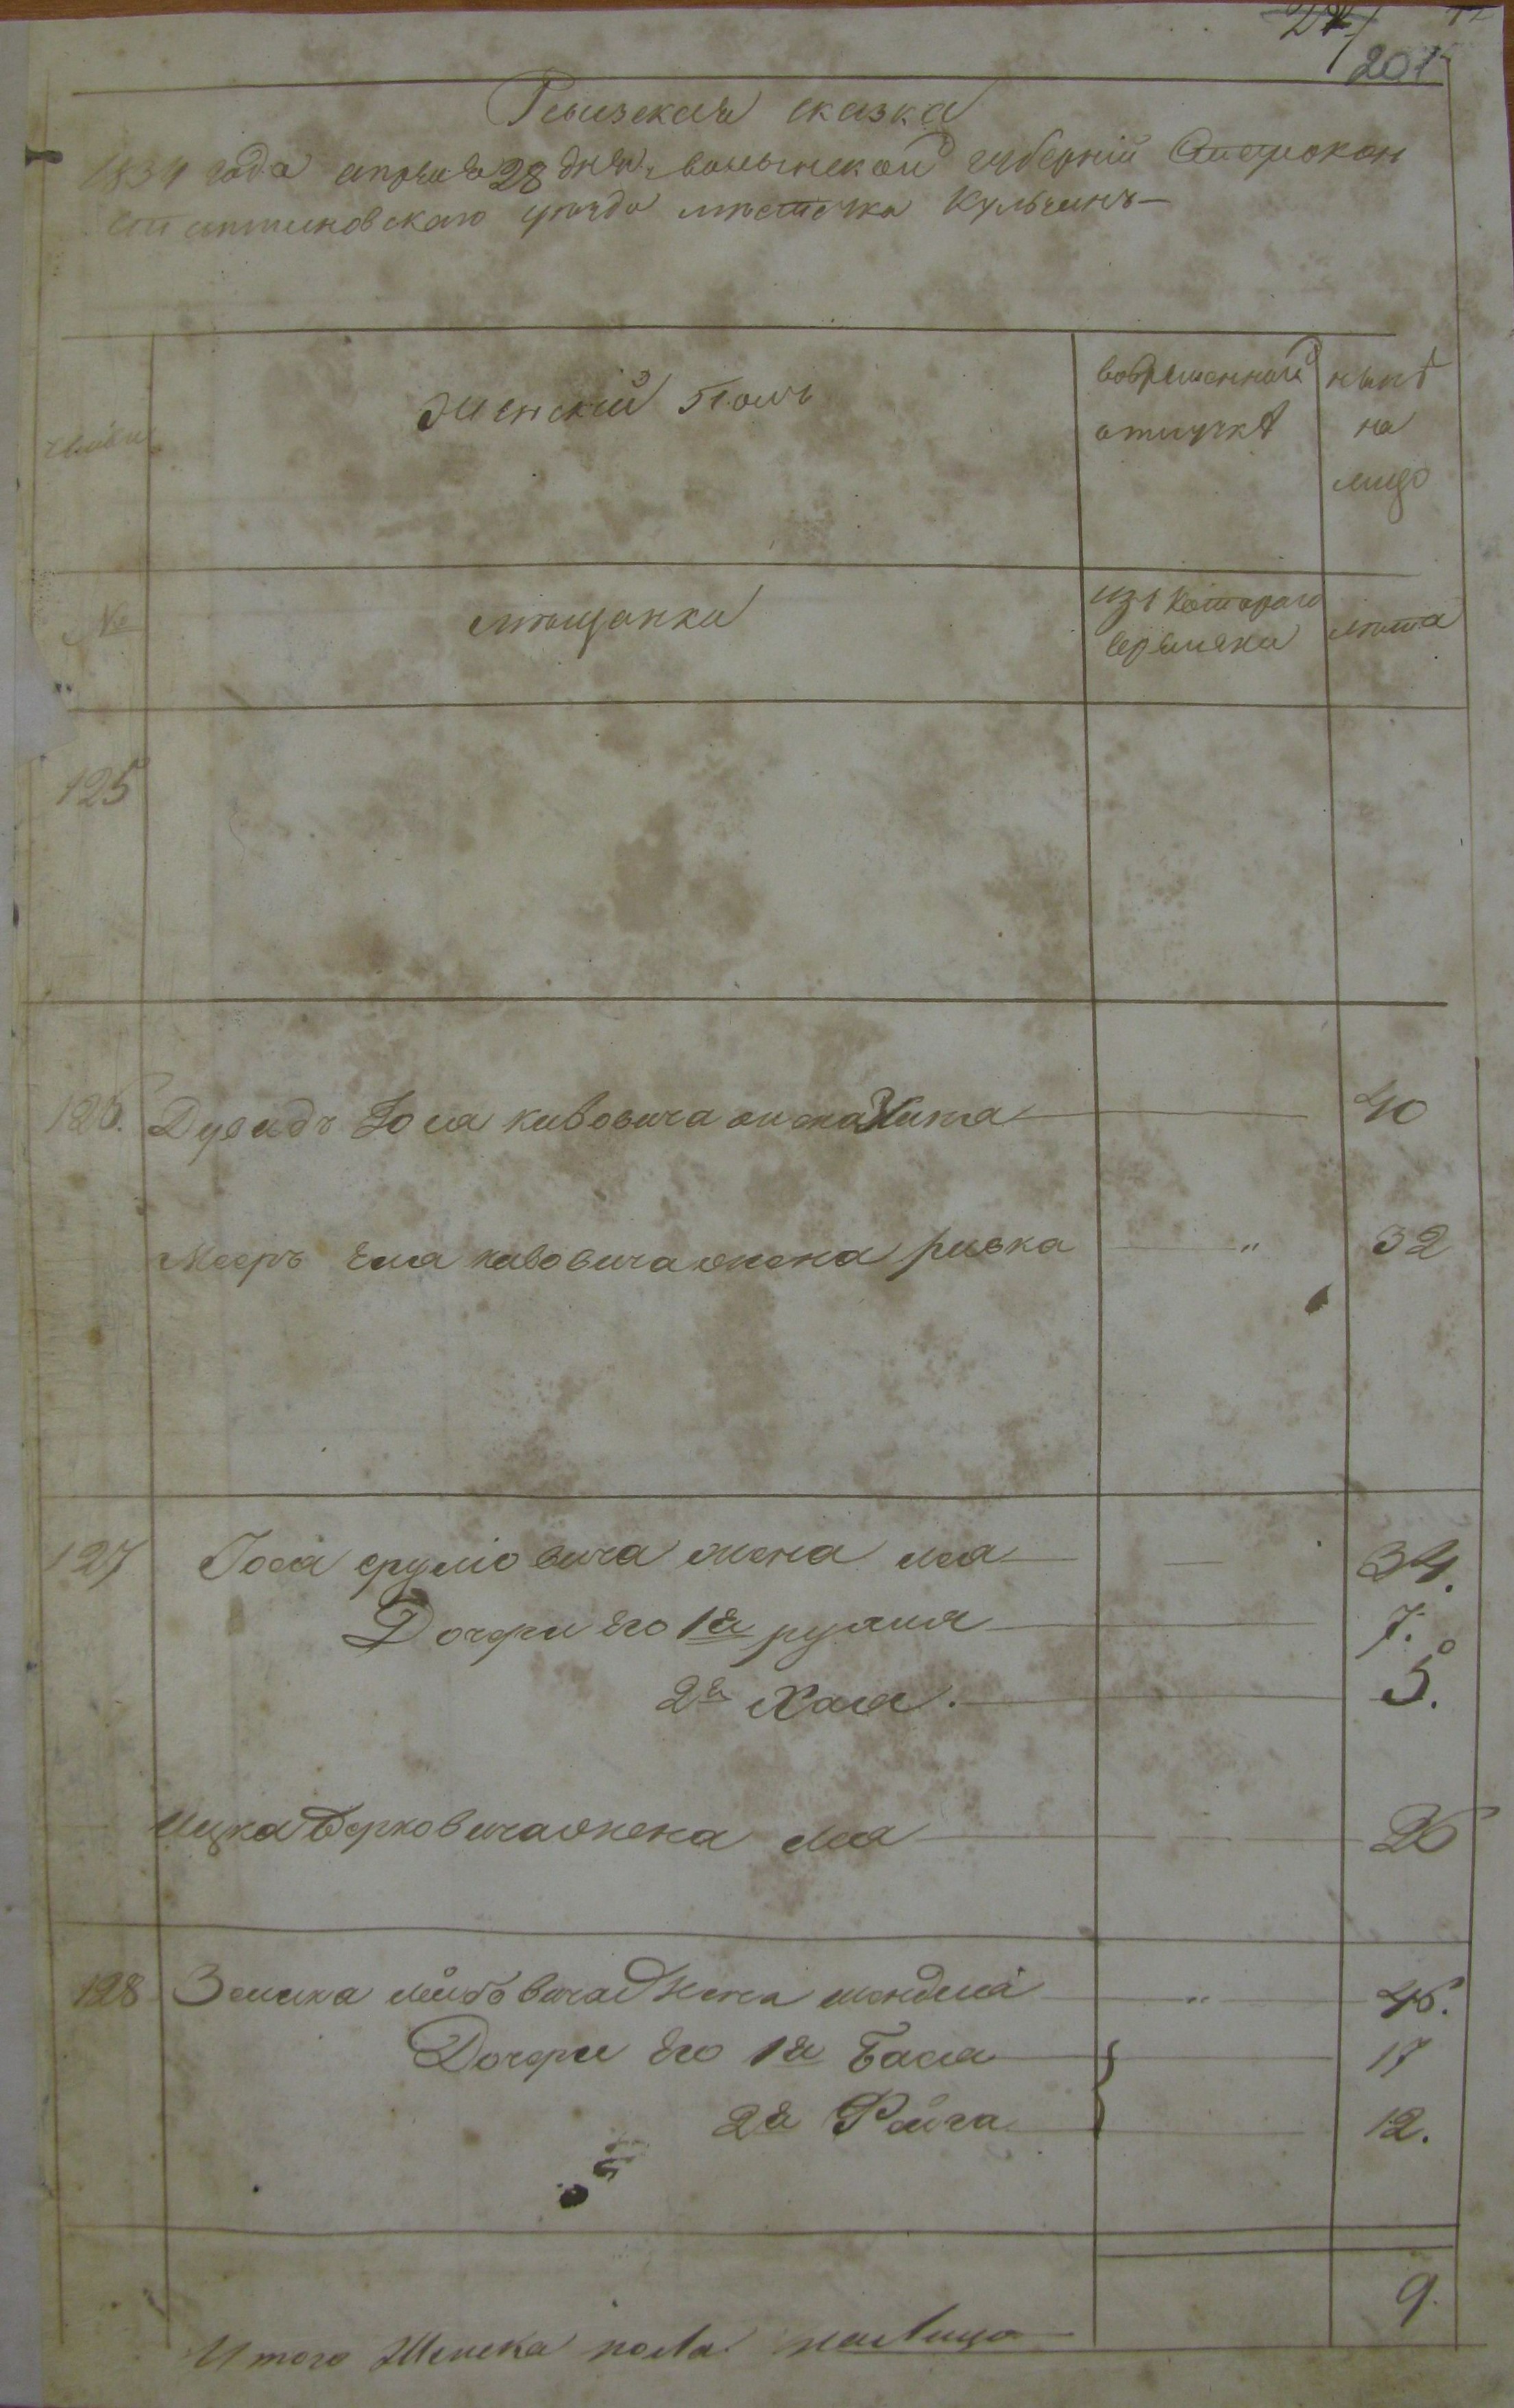 201
Ревизская сказка
1834 года апреля 28 дня волынской губерній Старокон
стантиновскаго уезда местечка Кульчинъ —
Женскій полъ
вовременной отлучкѣ
нынѣ на лицо
№
мѣщанки
изъ котораго времяни
лѣта
125
126. Дувидъ Іося кивовича жена Хита — 40
Мееръ Еля кивовича жена ривка — " 32
127 Іося срулювича жена лея — 34.
Дочери Его 1я рухля — 7.
2я Хая. — 5.
Ицка Берковича жена лея — 26
128 Зелика лейбовича Жена мендля — " 46.
Дочери Его 1я Бася — 17
2я Файга — 12.
Итого Женска пола налицо — 9.